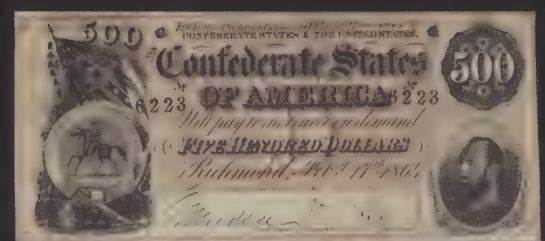 500
CONFEDERATE STATES & THE UNITED STATES.
Confederate States
500
No 6223 OF AMERICA No 6223
Will pay to the bearer on demand
FIVE HUNDRED DOLLARS
Richmond, Feby 17th 1864